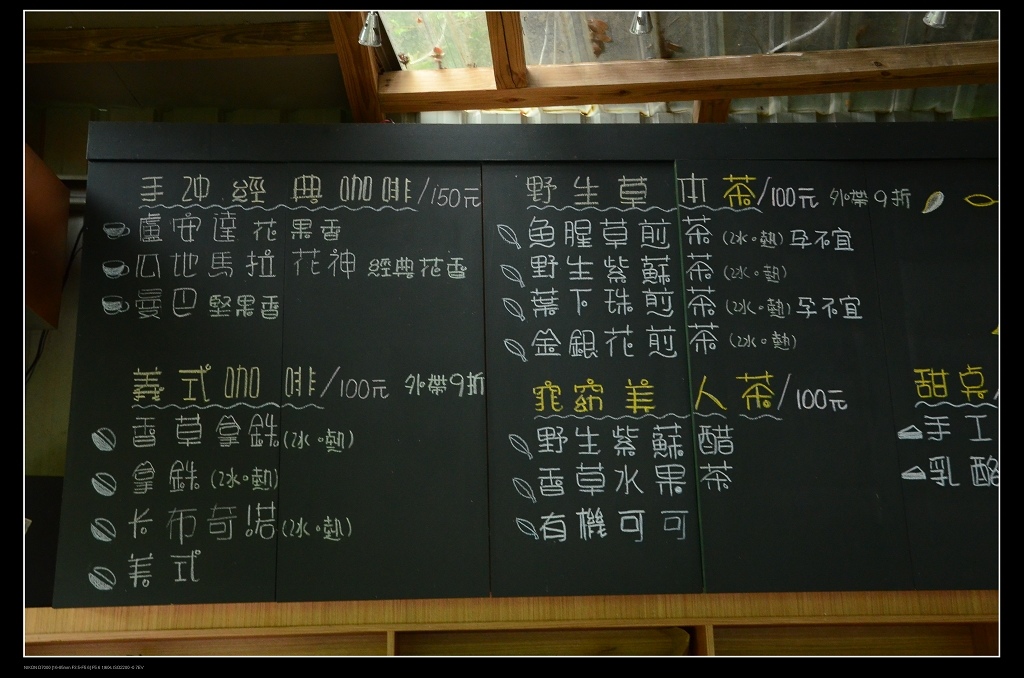 手沖經典咖啡/150元
盧安達 花果香
瓜地馬拉 花神 經典花香
曼巴 堅果香
義式咖啡/100元 外帶9折
香草拿鉄(冰。熱)
拿鉄(冰。熱)
卡布奇諾(冰。熱)
美式
野生草本茶/100元 外帶9折
魚腥草煎茶(冰。熱)孕不宜
野生紫蘇茶(冰。熱)
葉下珠煎茶(冰。熱)孕不宜
金銀花煎茶(冰。熱)
窕窈美人茶/100元
野生紫蘇醋
香草水果茶
有機可可
甜桌
手工
乳酪